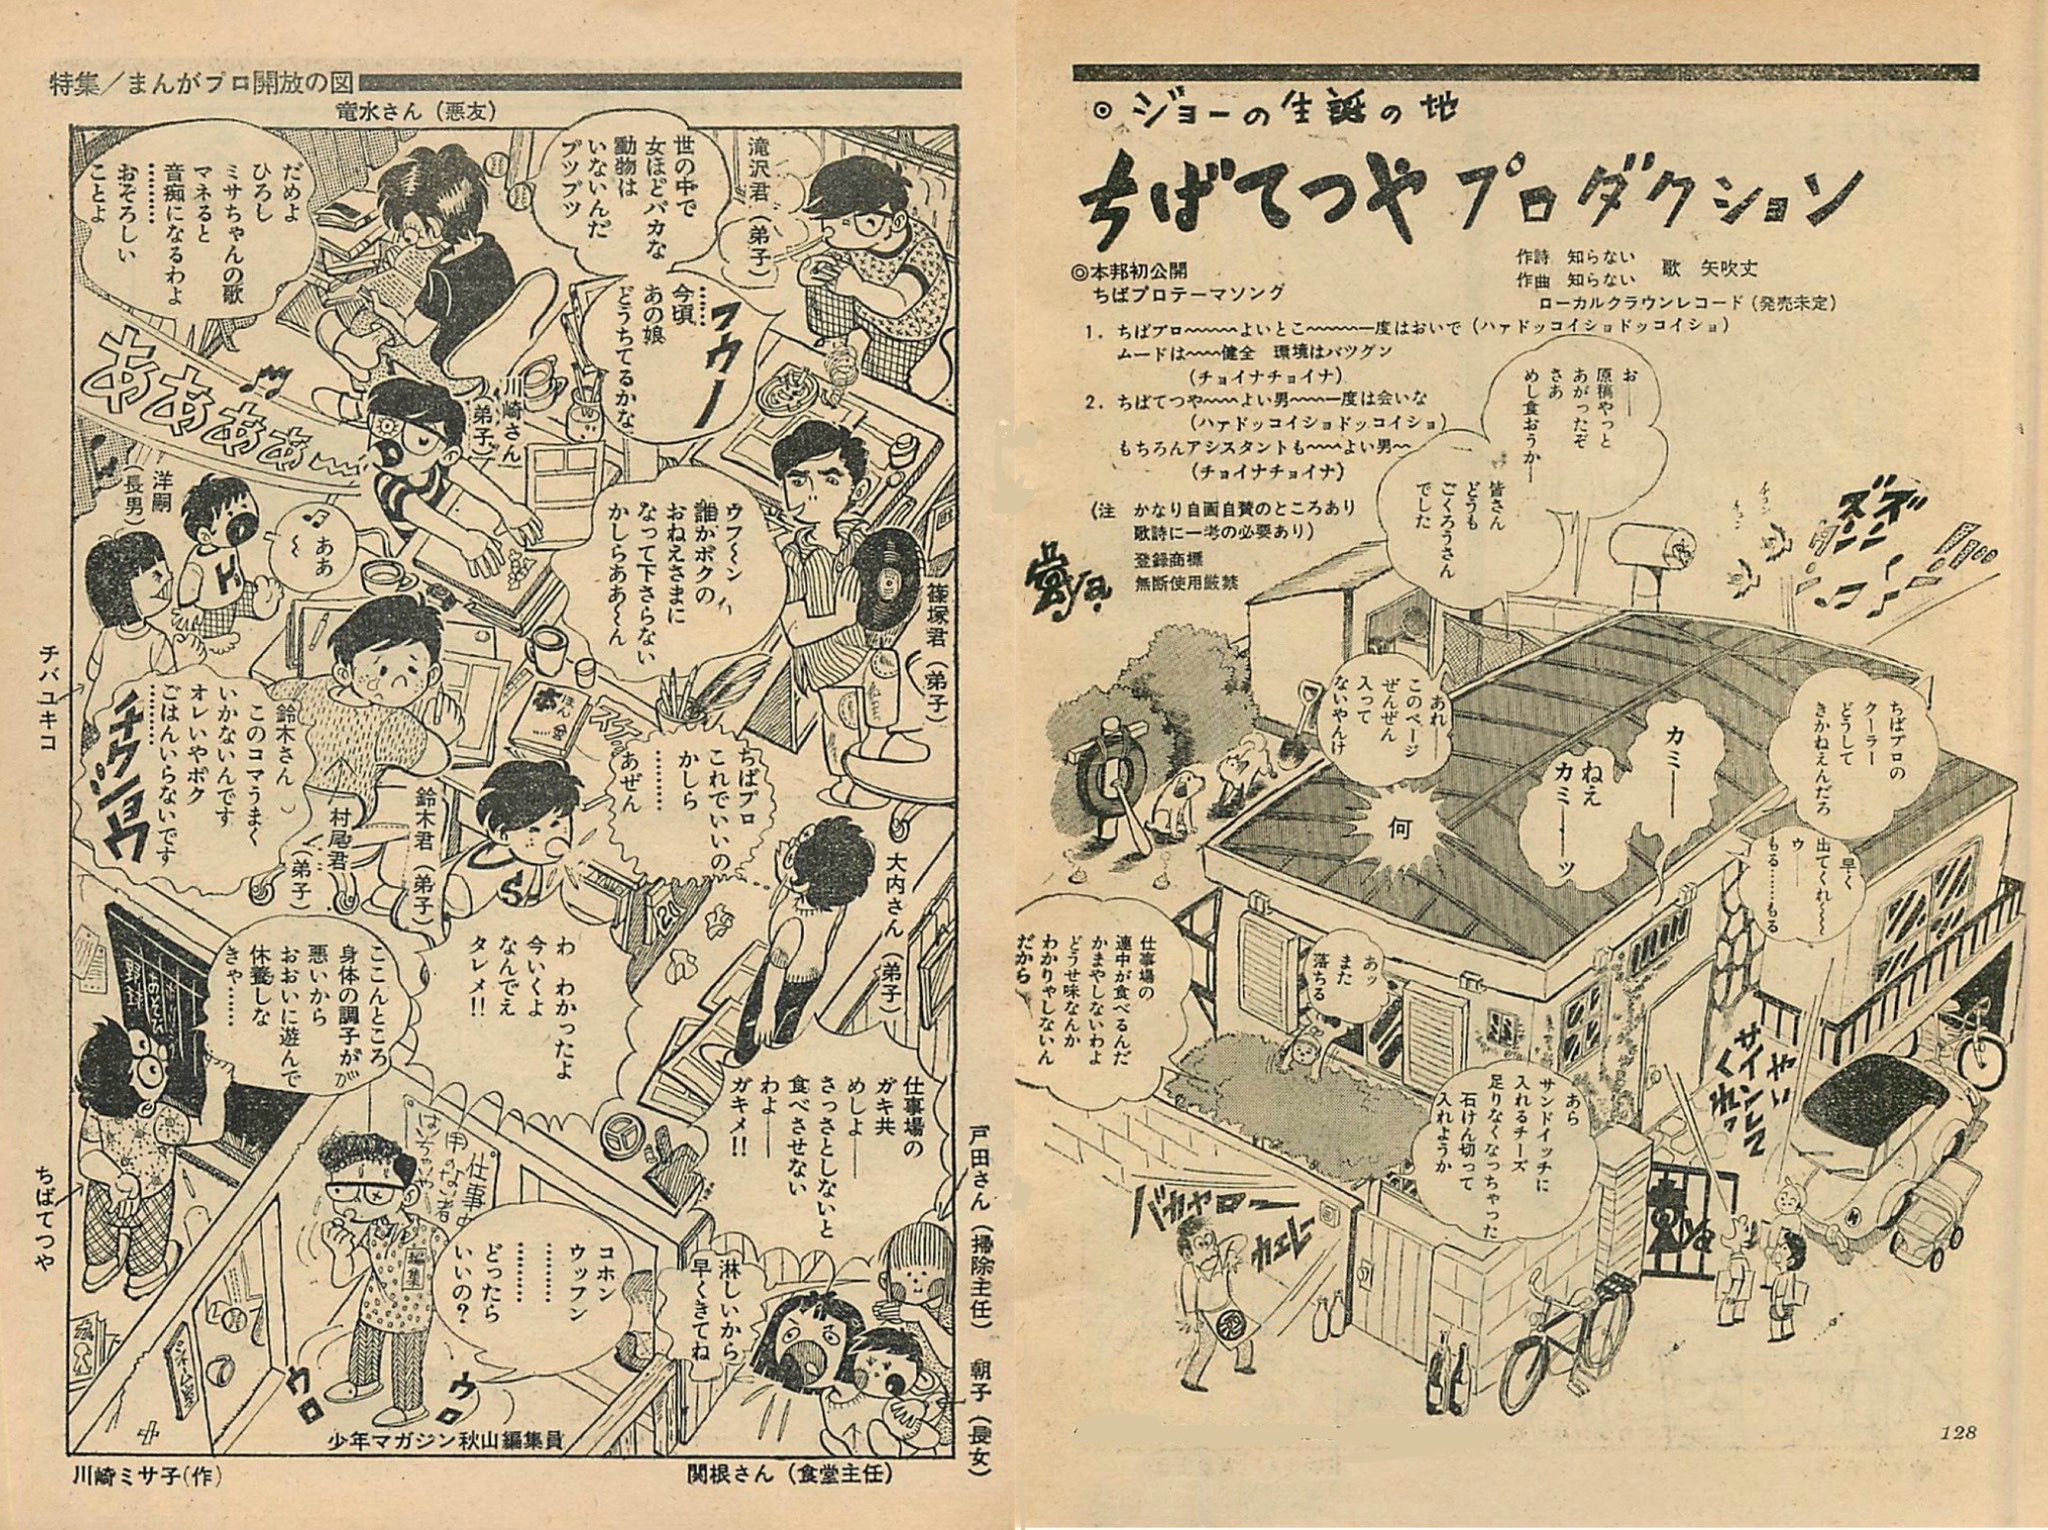 ◎ジョーの生誕の地
ちばてつやプロダクション
◎本邦初公開
ちばプロテーマソング
作詩 知らない
作曲 知らない
歌 矢吹丈
ローカルクラウンレコード(発売未定)
1. ちばプロ〜〜〜よいとこ〜〜〜一度はおいで(ハァドッコイショドッコイショ)
ムードは〜〜健全 環境はバツグン
(チョイナチョイナ)
2. ちばてつや〜〜〜よい男〜〜一度は会いな
(ハァドッコイショドッコイショ)
もちろんアシスタントも〜〜〜よい男〜
(チョイナチョイナ)
(注 かなり自画自賛のところあり
歌詩に一考の必要あり)
登録商標
無断使用厳禁
お——
原稿やっと
あがったぞ
さあ
めし食おうか—
皆さん
どうも
ごくろうさん
でした
チュン
チュン
ズンデン
あれ——
このページ
ぜんぜん
入って
ないやんけ
何
カミ——
ねえ
カミ——ッ
ちばプロの
クーラー
どうして
きかねえんだろ
早く
出てくれ〜〜
ウ——
もる……もる
あッ
また
落ちる
仕事場の
連中が食べるんだ
かまやしないわよ
どうせ味なんか
わかりゃしないん
だから
あら
サンドイッチに
入れるチーズ
足りなくなっちゃった
石けん切って
入れようか
サインして
くれっ
バカヤロー
カエレ
128
特集/まんがプロ開放の図
竜水さん(悪友)
だめよ
ひろし
ミサちゃんの歌
マネると
音痴になるわよ
………
おそろしい
ことよ
滝沢君(弟子)
世の中で
女ほどバカな
動物は
いないんだ
ブツブツ
……
今頃
あの娘
どうちてるかな
フウー
川崎さん(弟子)
ああああ
洋嗣(長男)
ああ
〜
ウフ〜ン
誰かボクの
おねえさまに
なって下さらない
かしらああ〜ん
篠塚君(弟子)
チバユキコ
鈴木さん
このコマうまく
いかないんです
オレいやボク
ごはんいらないです
………
チクショウ
村尾君(弟子)
鈴木君(弟子)
ちばプロ
これでいいの
かしら
………
あぜん
大内さん(弟子)
わ わかったよ
今いくよ
なんでえ
タレメ!!
ここんところ
身体の調子が
悪いから
おおいに遊んで
休養しな
きゃ……
野球
ちばてつや
仕事中
用のない者
はいるな
コホン
ウッフン
………
………
どったら
いいの?
編集
ウロ
ウロ
少年マガジン秋山編集員
仕事場の
ガキ共
めしよ——
さっさとしないと
食べさせない
わよ——
ガキメ!!
淋しいから
早くきてね
戸田さん(掃除主任)
朝子(長女)
関根さん(食堂主任)
川崎ミサ子(作)